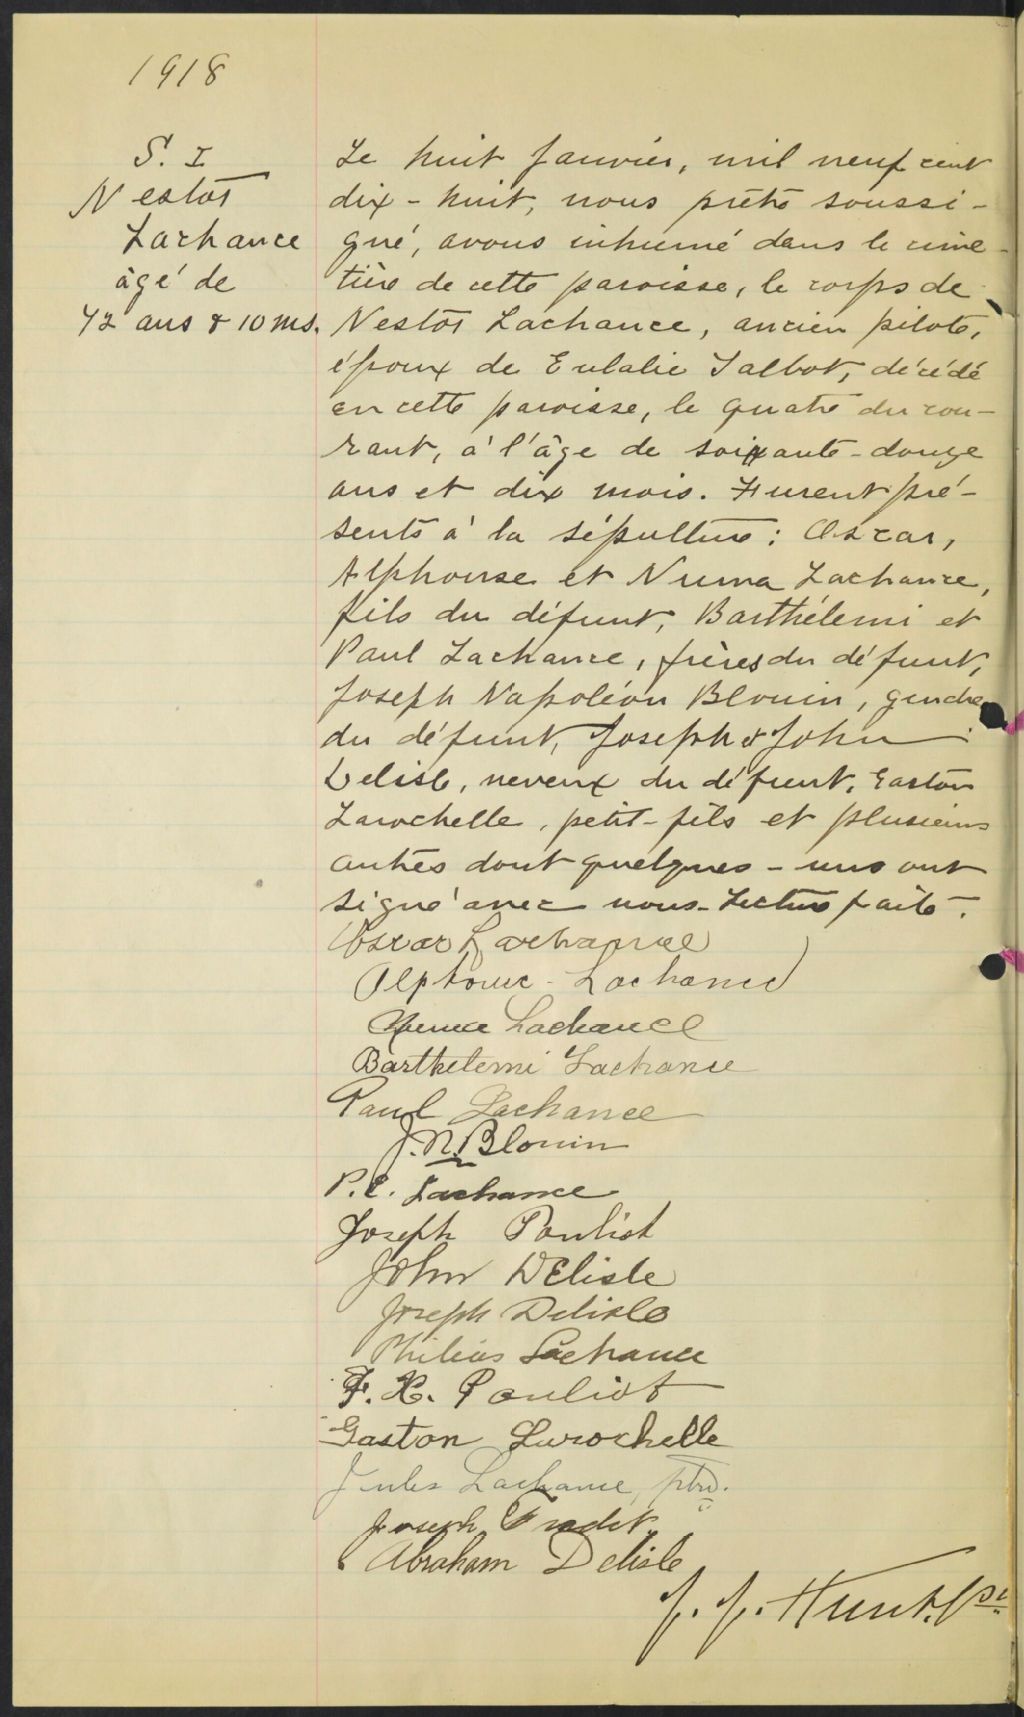 1918
S. I
Nestor
Lachance
âgé de
72 ans & 10 ms.
Le huit Janvier, mil neuf cent
dix-huit, nous prêtre soussi-
gné, avons inhumé dans le cime-
tière de cette paroisse, le corps de
Nestor Lachance, ancien pilote,
époux de Eulalie Talbot, décédé
en cette paroisse, le quatre du cou-
rant, à l'âge de soixante-douze
ans et dix mois. Furent pré-
sents à la sépulture: Oscar,
Alphonse et Numa Lachance,
fils du défunt, Barthélemi et
Paul Lachance, frères du défunt,
Joseph Napoléon Blouin, gendre
du défunt, Joseph & John
Delisle, neveux du défunt, Gaston
Larochelle, petit-fils et plusieurs
autres dont quelques-uns ont
signé avec nous. Lecture faite.
Oscar Lachance
Alphonse Lachance
Numa Lachance
Barthelemi Lachance
Paul Lachance
J. N. Blouin
P. E. Lachance
Joseph Pouliot
John Delisle
Joseph Delisle
Philéas Lachance
F. X. Pouliot
Gaston Larochelle
Jules Lachance, ptre.
Joseph
Abraham Delisle
J. J. Hunt. Ptre